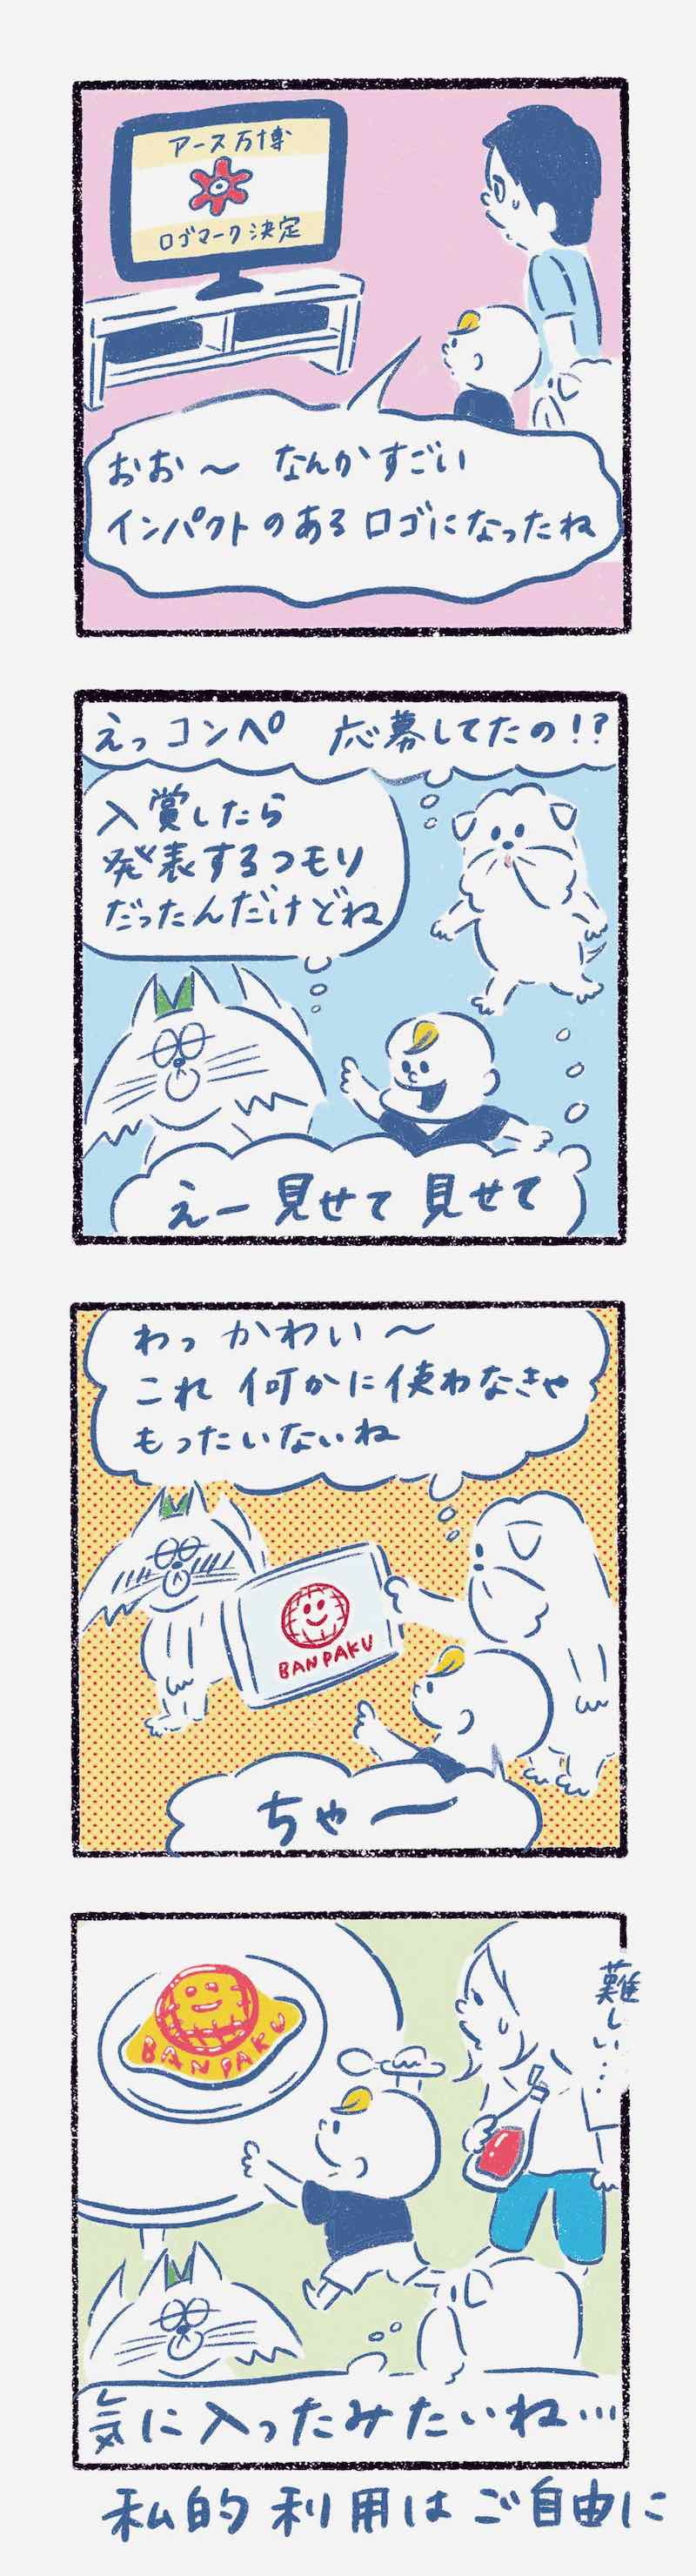 アース万博
ロゴマーク決定
おお〜 なんかすごい
インパクトのあるロゴになったね
えっコンペ 応募してたの!?
入賞したら
発表するつもり
だったんだけどね
えー見せて見せて
わっかわい〜
これ何かに使わなきゃ
もったいないね
BANPAKU
ちゃー
難しい…
BANPAKU
気に入ったみたいね…
私的利用はご自由に